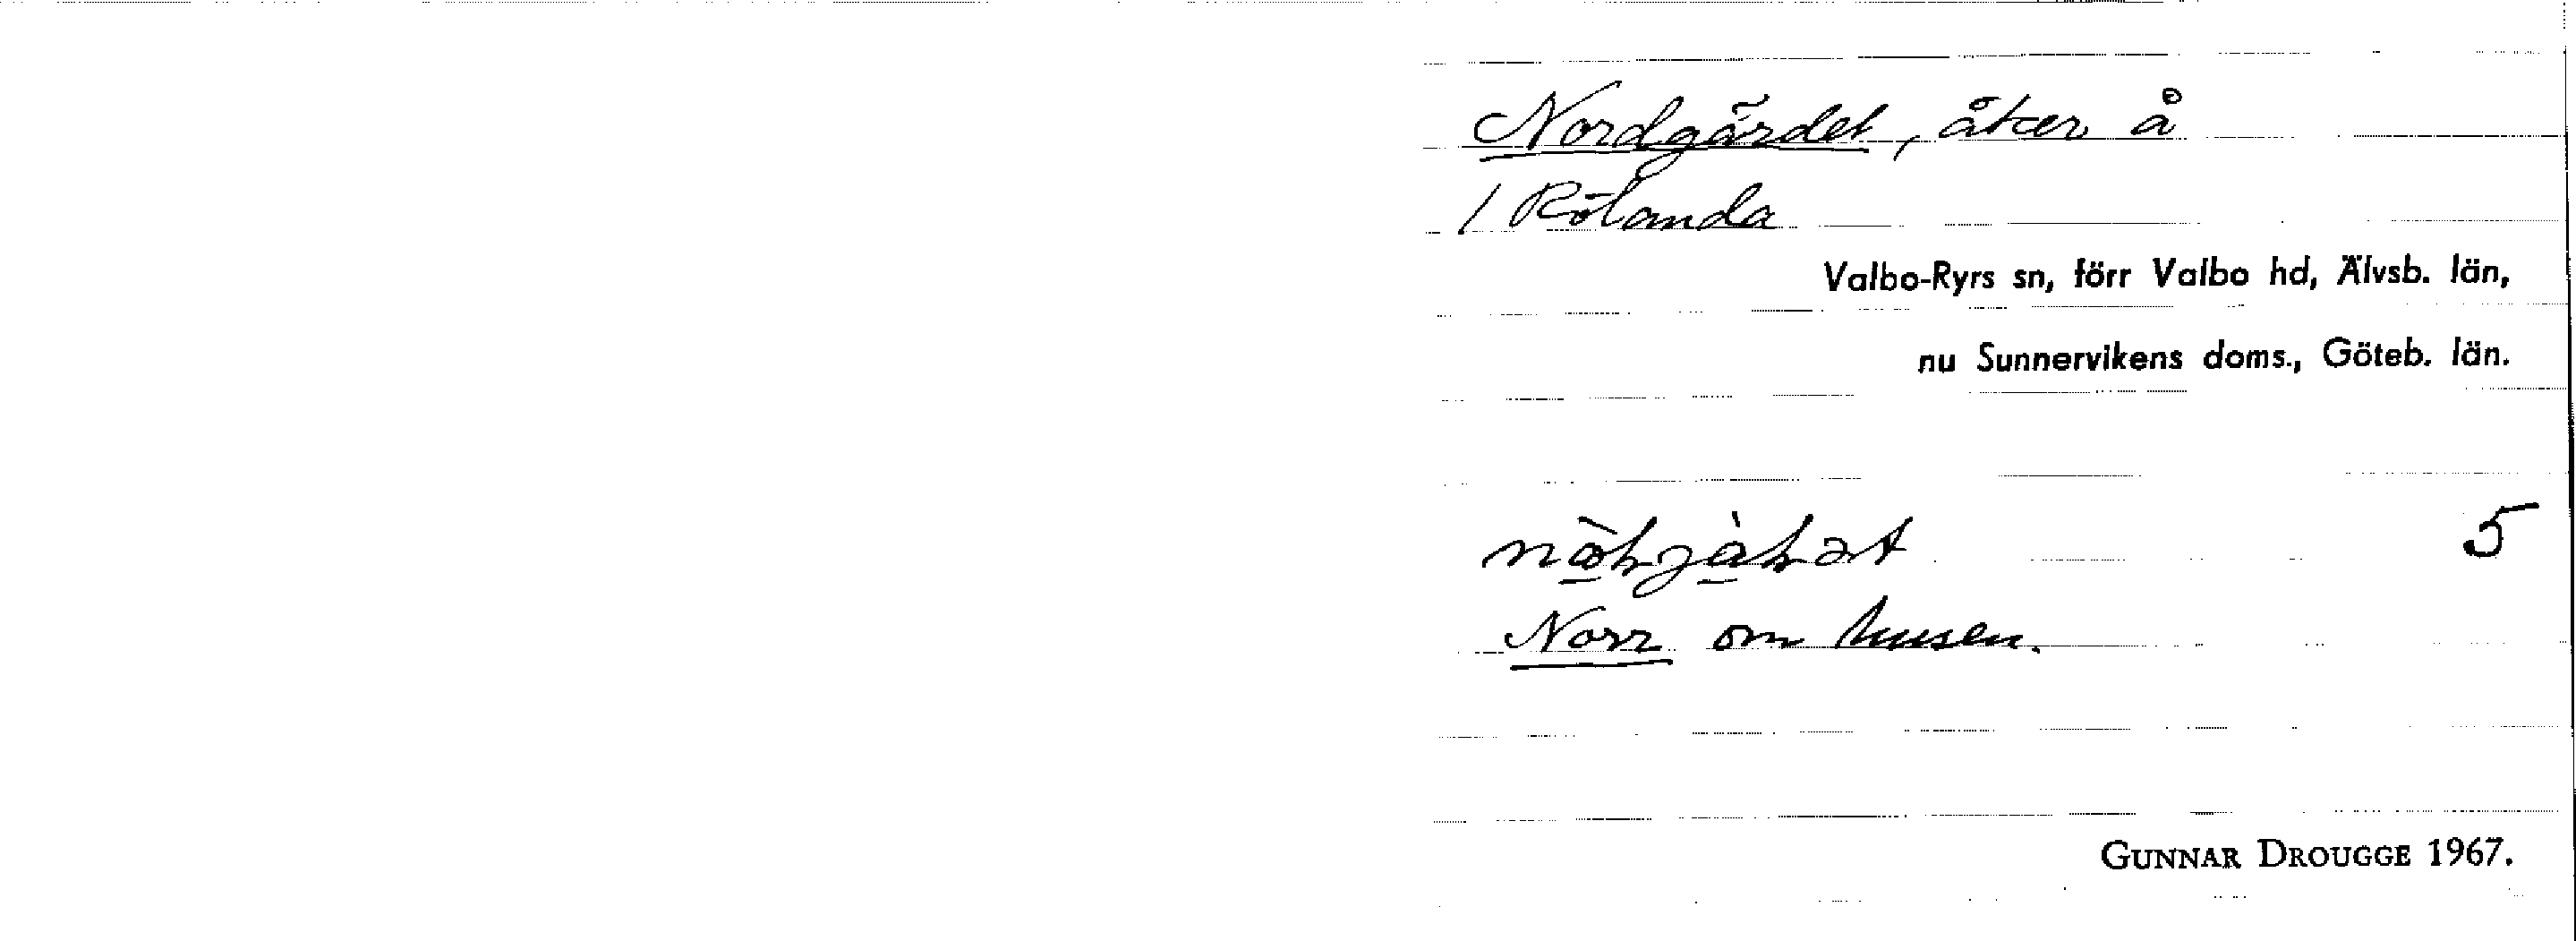 Nordgärdet, åker å
1 Rölanda
Valbo-Ryrs sn, förr Valbo hd, Älvsb. län,
nu Sunnervikens doms., Göteb. län.
5
Norr om husen.
GUNNAR DROUGGE 1967.